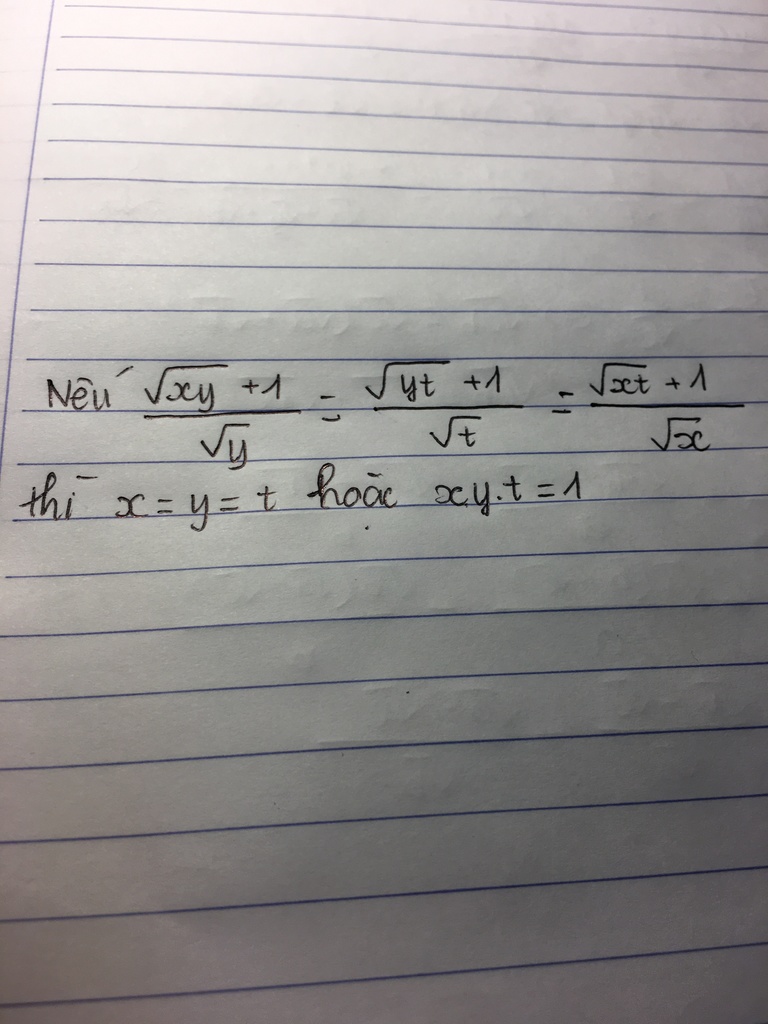 Nếu (√xy + 1)/√y = (√yt + 1)/√t = (√xt + 1)/√x
thì x = y = t hoặc x.y.t = 1